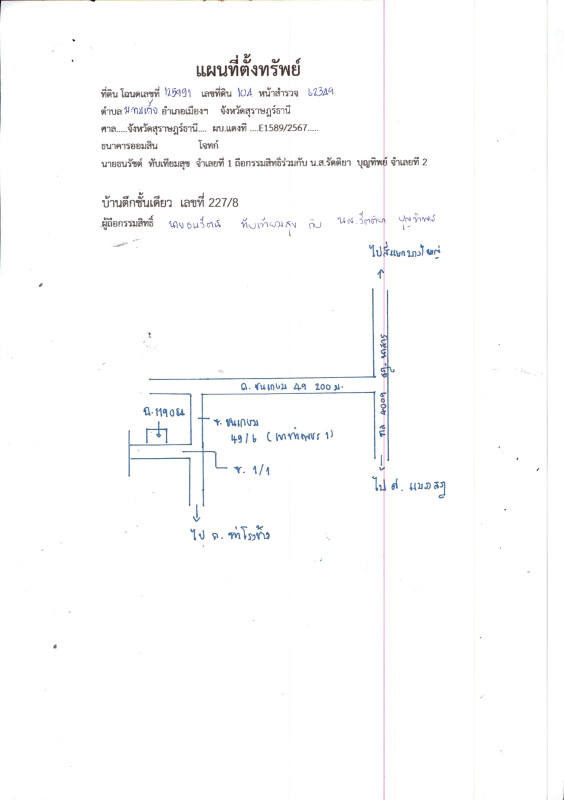 แผนที่ตั้งทรัพย์
ที่ดิน โฉนดเลขที่ 125991 เลขที่ดิน 104 หน้าสำรวจ 62349
ตำบล มะขามเตี้ย อำเภอเมืองฯ จังหวัดสุราษฎร์ธานี
ศาล.....จังหวัดสุราษฎร์ธานี.... ผบ.แดงที่ ....E1589/2567.....
ธนาคารออมสิน โจทก์
นายธนรัชต์ ทับเทียมสุข จำเลยที่ 1 ถือกรรมสิทธิ์ร่วมกับ น.ส.รัตติยา บุญทิพย์ จำเลยที่ 2
บ้านตึกชั้นเดียว เลขที่ 227/8
ผู้ถือกรรมสิทธิ์ ทับเทียมสุข กับ น.ส.
ไปสี่แยกบางใหญ่
ถ. ชนเกษม 49 200 ม.
ทล 4009 สฎ. นาสาร
ฉ.
ซ. ชนเกษม
49/6
ซ. 1/1
ไป
ไป ถ. ท่าโรงช้าง